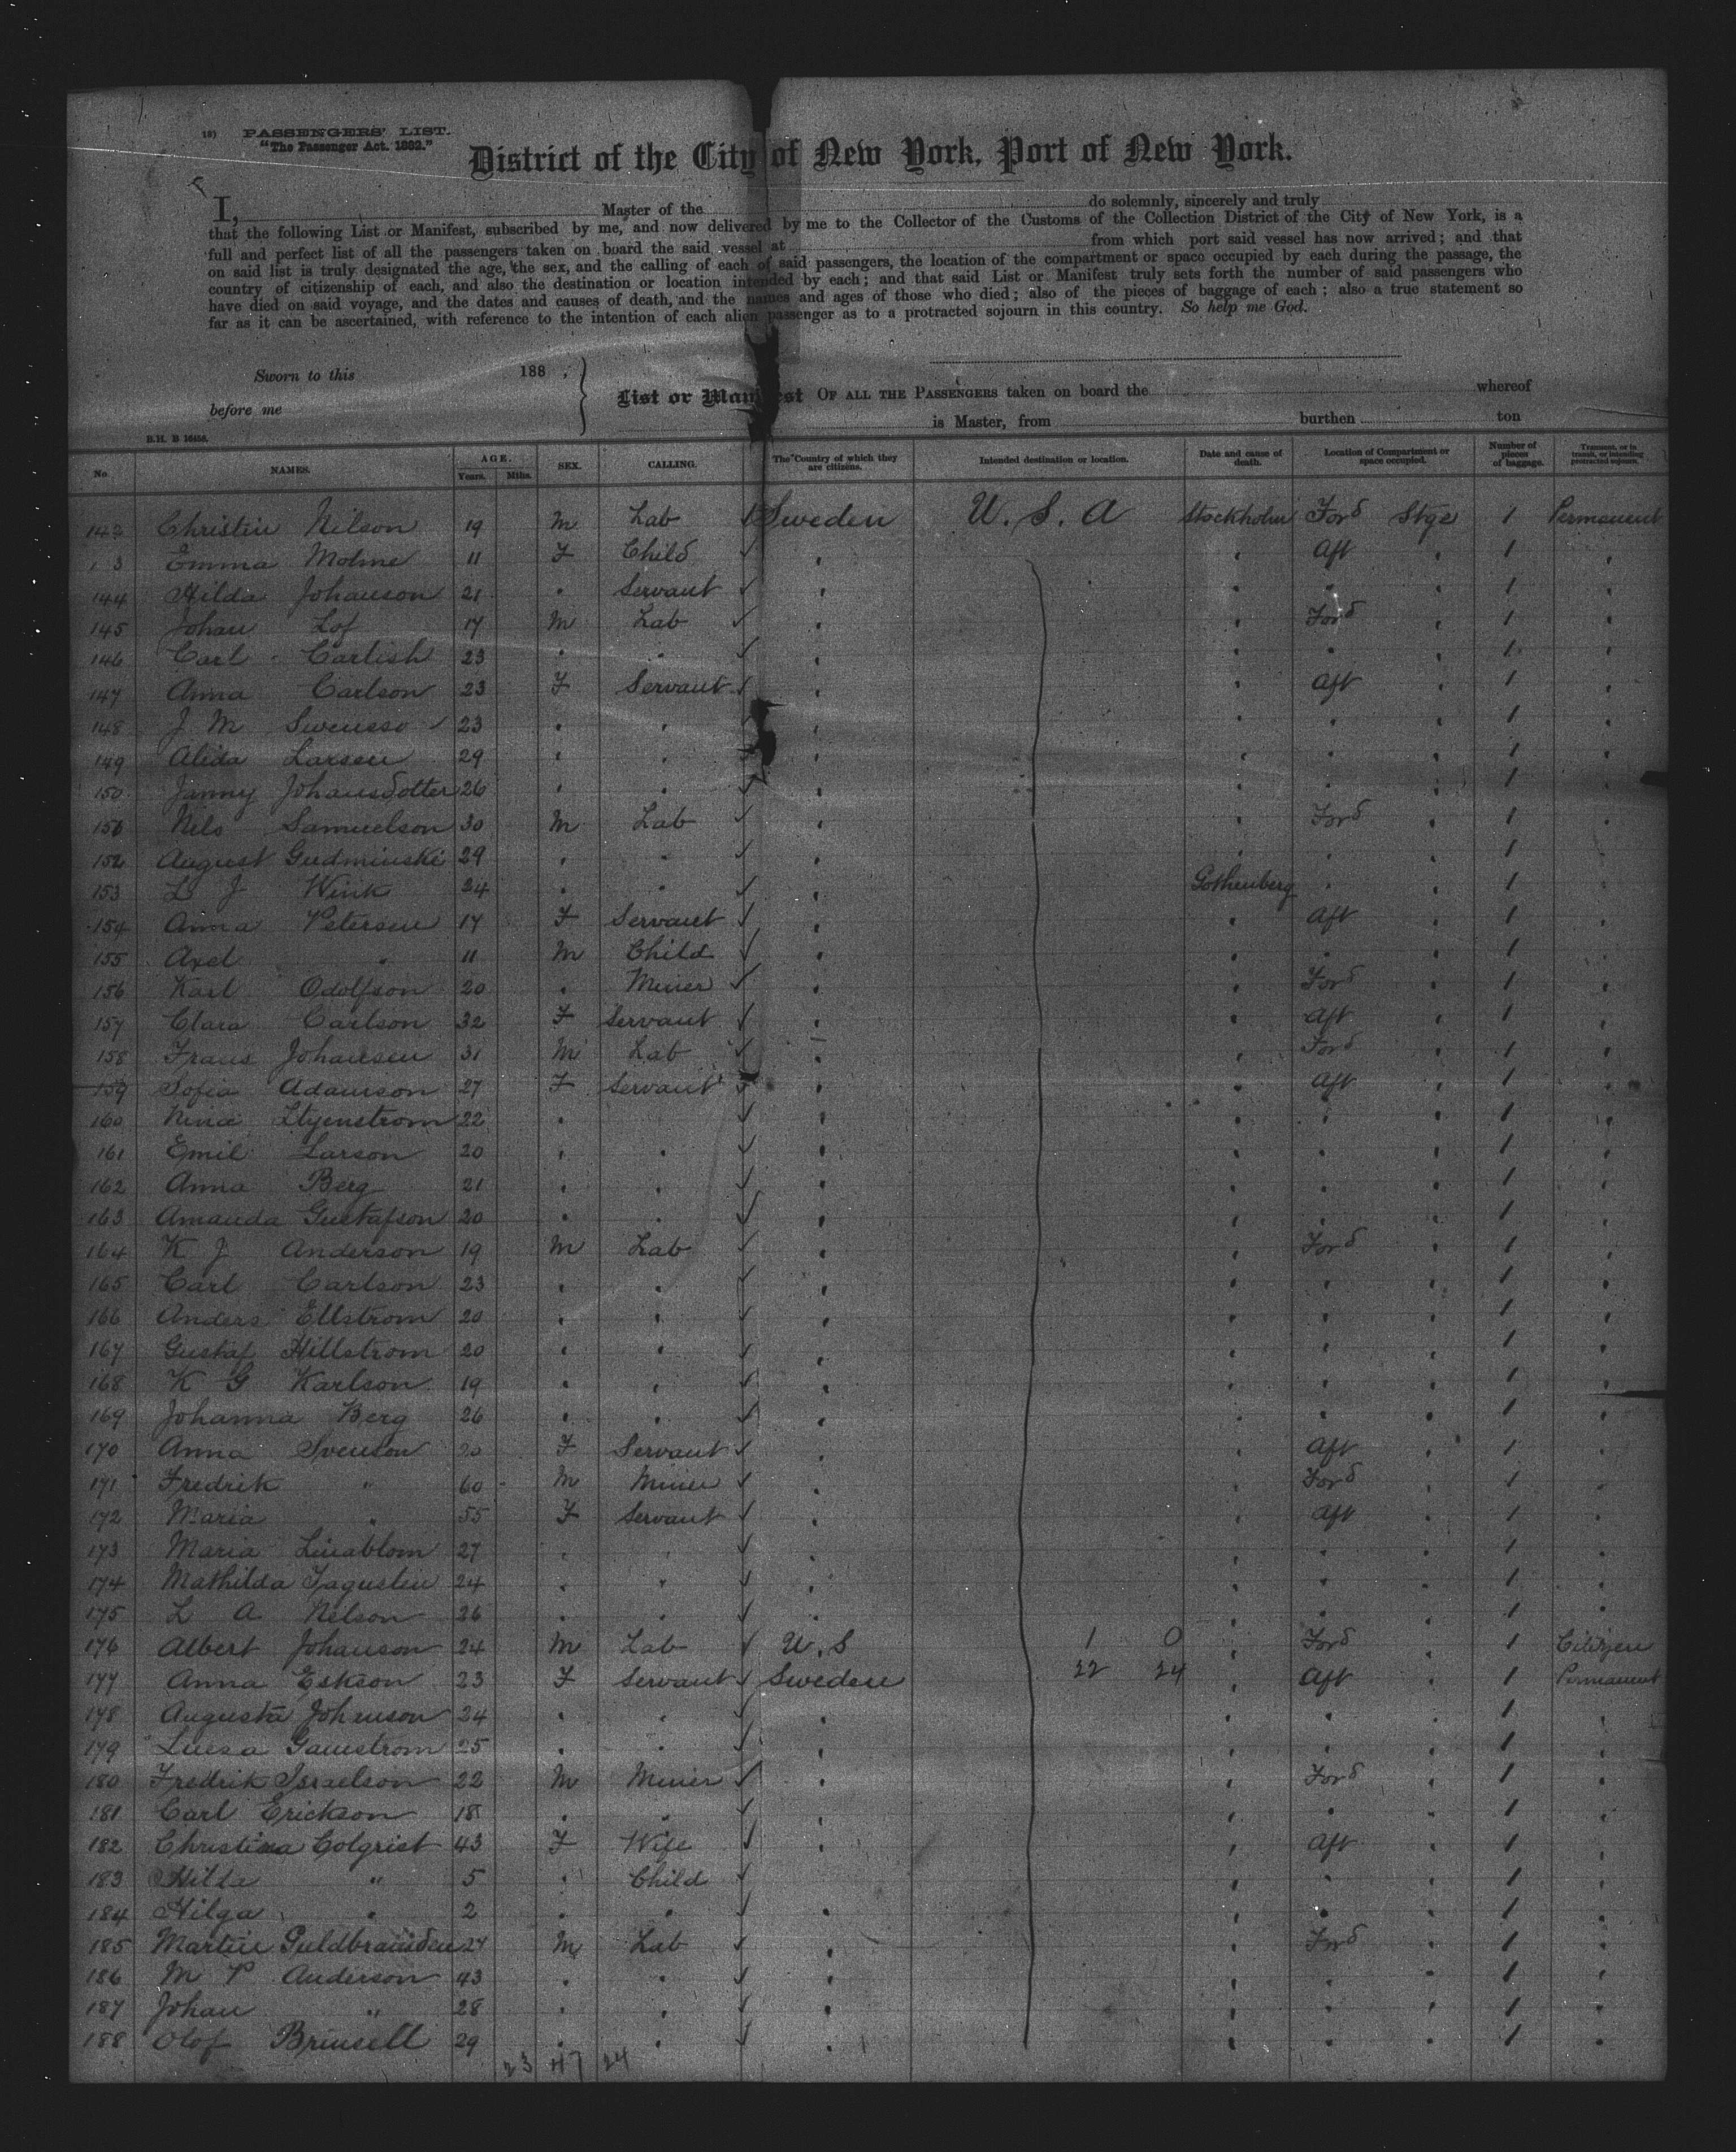 18) PASSENGERS' LIST.
"The Passenger Act. 1882."
District of the City of New York, Port of New York.
I, Master of the do solemnly, sincerely and truly
that the following List or Manifest, subscribed by me, and now delivered by me to the Collector of the Customs of the Collection District of the City of New York, is a
full and perfect list of all the passengers taken on board the said vessel at from which port said vessel has now arrived; and that
on said list is truly designated the age, the sex, and the calling of each of said passengers, the location of the compartment or space occupied by each during the passage, the
country of citizenship of each, and also the destination or location intended by each; and that said List or Manifest truly sets forth the number of said passengers who
have died on said voyage, and the dates and causes of death, and the names and ages of those who died; also of the pieces of baggage of each; also a true statement so
far as it can be ascertained, with reference to the intention of each alien passenger as to a protracted sojourn in this country. So help me God.
Sworn to this 188 .
before me
List or Manifest OF ALL THE PASSENGERS taken on board the whereof
is Master, from burthen ton
B.H. B 16456.
No. NAMES. AGE. Years. Mths. SEX. CALLING. The Country of which they are citizens. Intended destination or location. Date and cause of death. Location of Compartment or space occupied. Number of pieces of baggage. Transient, or in transit, or intending protracted sojourn.
142 Christin Nilson 19 M Lab Sweden U. S. A Stockholm Ford Stge 1 Permanent
3 Emma Molme 11 F Child " " Aft " 1 "
144 Hilda Johanson 21 " Servant " " " " 1 "
145 Johan Lof 17 M Lab " " Ford " 1 "
146 Carl Carlish 23 " " " " " " 1 "
147 Anna Carlson 23 F Servant " " Aft " 1 "
148 J M Swensso 23 " " " " " " 1 "
149 Alida Larsen 29 " " " " " " 1 "
150 Janny Johansdotter 26 " " " " " " 1 "
151 Nils Samuelson 30 M Lab " " Ford " 1 "
152 August Gudminski 29 " " " " " " 1 "
153 L J Wink 24 " " " Gothenberg " " 1 "
154 Anna Petersen 17 F Servant " " Aft " 1 "
155 Axel " 11 M Child " " " " 1 "
156 Karl Odolfson 20 " Miner " " Ford " 1 "
157 Clara Carlson 32 F Servant " " Aft " 1 "
158 Frans Johansen 31 M Lab " " Ford " 1 "
159 Sofia Adamson 27 F Servant " " Aft " 1 "
160 Nina Ltyenstrom 22 " " " " " 1 "
161 Emil Larson 20 " " " " " " 1 "
162 Anna Berg 21 " " " " " " 1 "
163 Amanda Gustafson 20 " " " " " " 1 "
164 K J Anderson 19 M Lab " " Ford " 1 "
165 Carl Carlson 23 " " " " " " 1 "
166 Anders Ellstrom 20 " " " " " " 1 "
167 Gustaf Hillstrom 20 " " " " " " 1 "
168 K G Karlson 19 " " " " " " 1 "
169 Johanna Berg 26 " " " " " " 1 "
170 Anna Svenson 20 F Servant " " Aft " 1 "
171 Fredrik " 60 M Miner " " Ford " 1 "
172 Maria " 55 F Servant " " Aft " 1 "
173 Maria Linablom 27 " " " " " " 1 "
174 Mathilda Fagusten 24 " " " " " " 1 "
175 L A Nelson 26 " " " " " " 1 "
176 Albert Johanson 24 M Lab U. S 1 0 " Ford " 1 Citizen
177 Anna Eskson 23 F Servant Sweden 22 24 " Aft " 1 Permanent
178 Augusta Johnson 24 " " " " " " 1 "
179 Luisa Gaustrom 25 " " " " " " 1 "
180 Fredrik Israelson 22 M Miner " " Ford " 1 "
181 Carl Erickson 18 " " " " " " 1 "
182 Christina Colgrist 43 F Wife " " Aft " 1 "
183 Hilda " 5 " Child " " " " 1 "
184 Hilga " 2 " " " " " " 1 "
185 Martin Guldbrandsen 27 M Lab " " Ford " 1 "
186 M P Anderson 43 " " " " " " 1 "
187 Johan " 28 " " " " " " 1 "
188 Olof Brinsell 29 " " " " " " 1 "
23 47 24